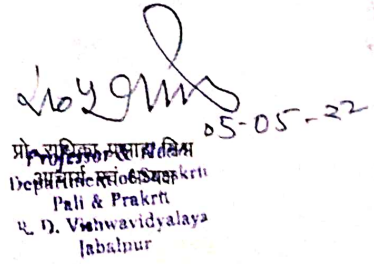 05-05-22
प्रो. राधिका प्रसाद मिश्र
Professor & Head
आचार्य एवं अध्यक्ष
Department of Sanskrit
Pali & Prakrit
R. D. Vishwavidyalaya
Jabalpur